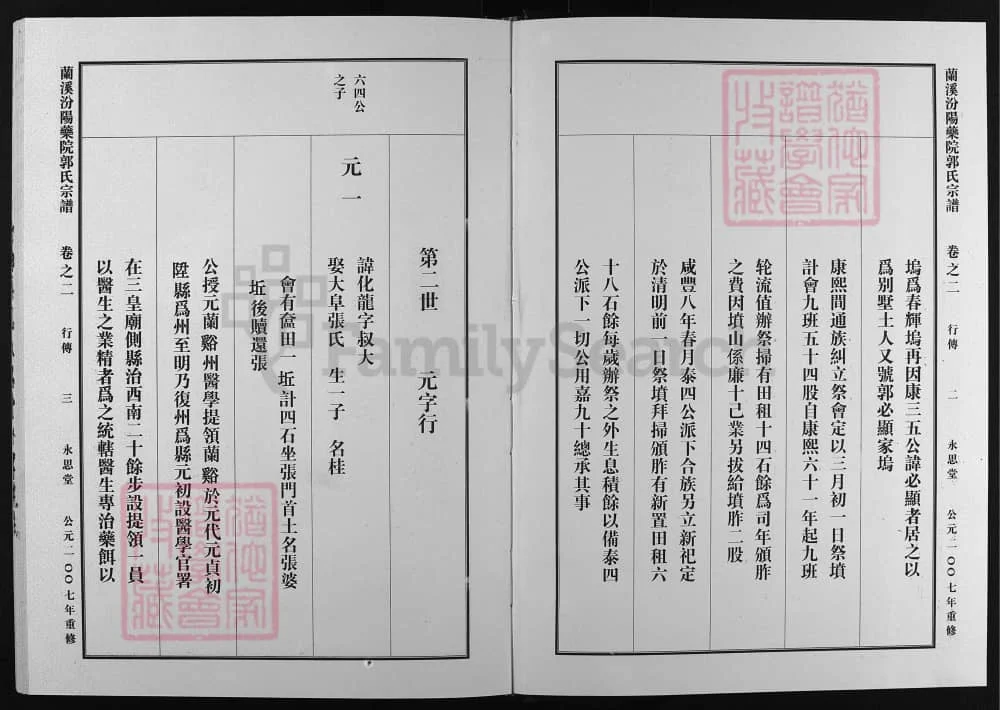 蘭溪汾陽藥院郭氏宗譜 卷之二 行傳 二 永思堂 公元二〇〇七年重修
塢爲春輝塢再因康三五公諱必顯者居之以
爲別墅土人又號郭必顯家塢
康熙間通族糾立祭會定以三月初一日祭墳
計會九班五十四股自康熙六十一年起九班
輪流值辦祭掃有田租十四石餘爲司年頒胙
之費因墳山係廉十己業另拔給墳胙二股
咸豐八年春月泰四公派下合族另立新祀定
於清明前一日祭墳拜掃頒胙有新置田租六
十八石餘每歲辦祭之外生息積餘以備泰四
公派下一切公用嘉九十總承其事
第二世 元字行
六四公
之子
元一
諱化龍字叔大
娶大阜張氏 生一子 名桂
會有奩田一坵計四石坐張門首土名張婆
坵後贖還張
公授元蘭谿州醫學提領蘭谿於元代元貞初
陞縣爲州至明乃復州爲縣元初設醫學官署
在三皇廟側縣治西南二十餘步設提領一員
以醫生之業精者爲之統轄醫生專治藥餌以
蘭溪汾陽藥院郭氏宗譜 卷之二 行傳 三 永思堂 公元二〇〇七年重修
FamilySearch